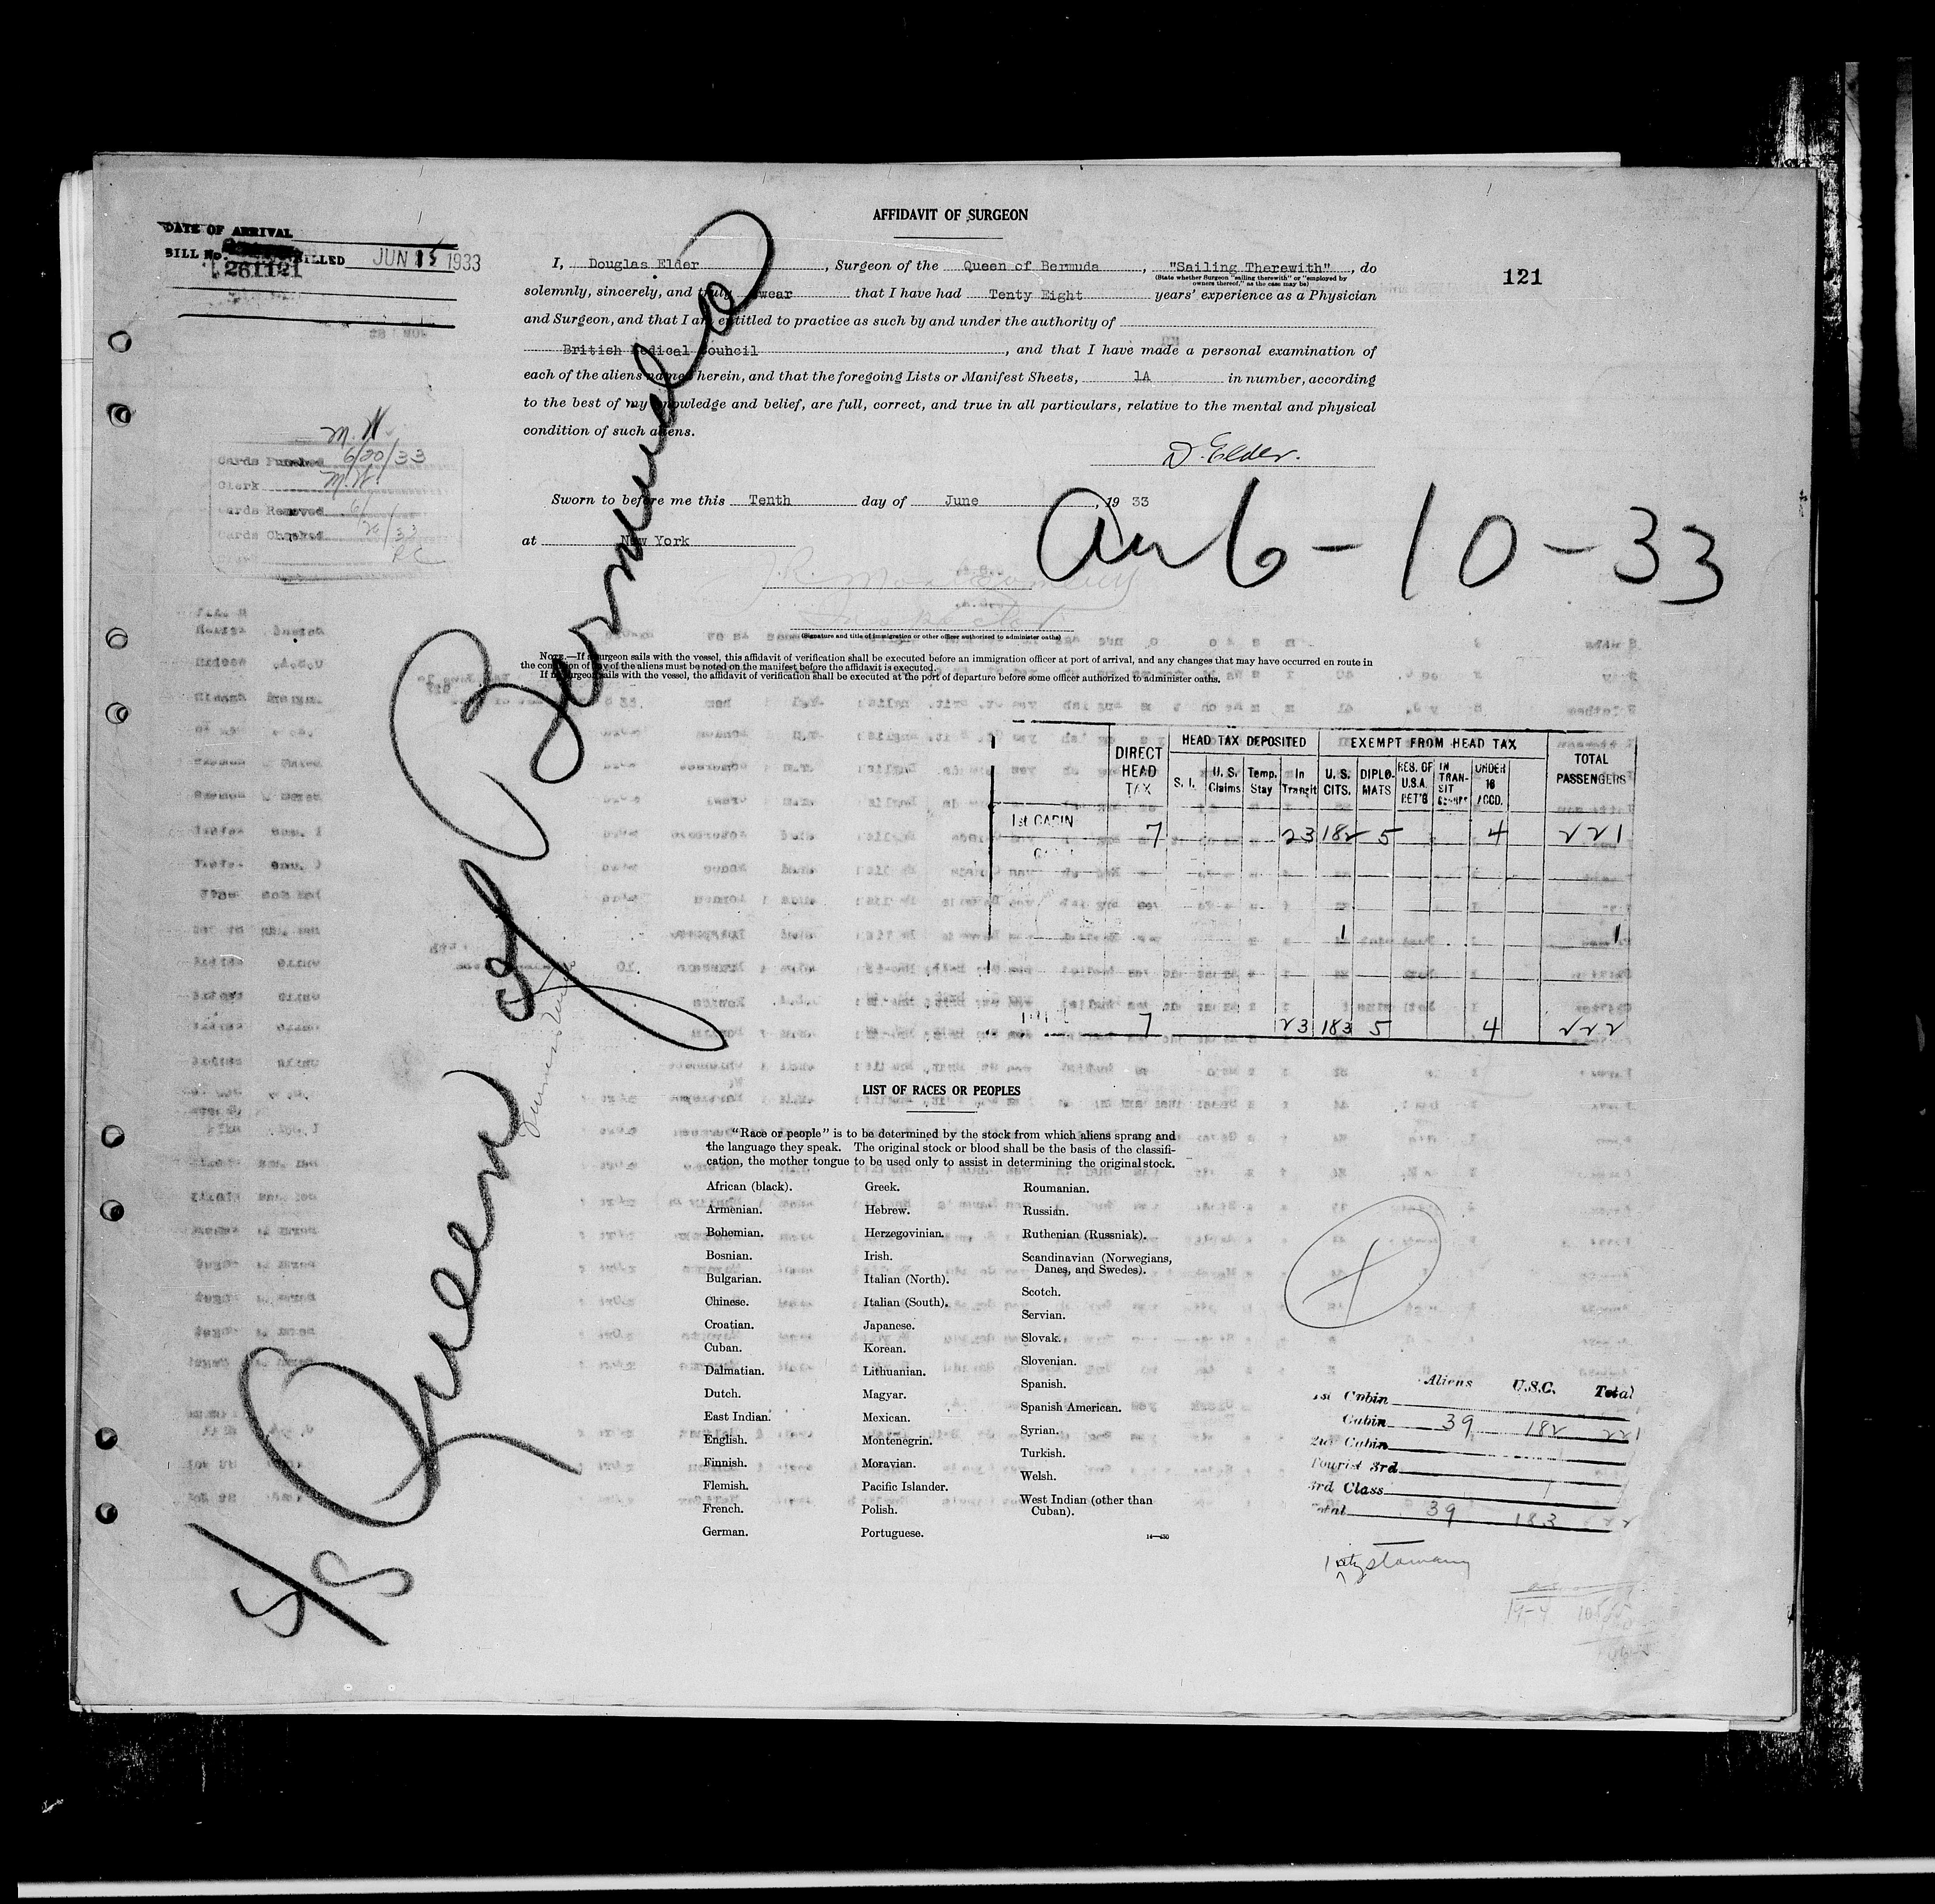 AFFIDAVIT OF SURGEON
DATE OF ARRIVAL
BILL No. BILLED JUN 15 1933
261121
121
I, Douglas Elder, Surgeon of the Queen of Bermuda, "Sailing Therewith", do
(State whether Surgeon "sailing therewith" or "employed by
owners thereof," as the case may be)
solemnly, sincerely, and truly swear that I have had Tenty Eight years' experience as a Physician
and Surgeon, and that I am entitled to practice as such by and under the authority of
British Medical Council, and that I have made a personal examination of
each of the aliens named herein, and that the foregoing Lists or Manifest Sheets, 1A in number, according
to the best of my knowledge and belief, are full, correct, and true in all particulars, relative to the mental and physical
condition of such aliens.
D. Elder.
Sworn to before me this Tenth day of June, 19 33
at New York
Arr 6-10-33
S/S Queen of Bermuda
M.W.
Cards Punched 6/20/33
Clerk M.W.
Cards Removed 6/
Cards Checked 20/33
RC
(Signature and title of immigration or other officer authorized to administer oaths)
NOTE.—If a surgeon sails with the vessel, this affidavit of verification shall be executed before an immigration officer at port of arrival, and any changes that may have occurred en route in
the condition of any of the aliens must be noted on the manifest before the affidavit is executed.
If no surgeon sails with the vessel, the affidavit of verification shall be executed at the port of departure before some officer authorized to administer oaths.
DIRECT HEAD TAX HEAD TAX DEPOSITED EXEMPT FROM HEAD TAX TOTAL PASSENGERS
S. I. U. S. Claims Temp. Stay In Transit U. S. CITS. DIPLOMATS RES. OF U.S.A. RET'G IN TRANSIT UNDER 16 ACCD.
1st CABIN 7 23 182 5 4 221
1 1
7 23 183 5 4 222
LIST OF RACES OR PEOPLES
"Race or people" is to be determined by the stock from which aliens sprang and
the language they speak. The original stock or blood shall be the basis of the classifi-
cation, the mother tongue to be used only to assist in determining the original stock.
African (black).
Armenian.
Bohemian.
Bosnian.
Bulgarian.
Chinese.
Croatian.
Cuban.
Dalmatian.
Dutch.
East Indian.
English.
Finnish.
Flemish.
French.
German.
Greek.
Hebrew.
Herzegovinian.
Irish.
Italian (North).
Italian (South).
Japanese.
Korean.
Lithuanian.
Magyar.
Mexican.
Montenegrin.
Moravian.
Pacific Islander.
Polish.
Portuguese.
Roumanian.
Russian.
Ruthenian (Russniak).
Scandinavian (Norwegians,
Danes, and Swedes).
Scotch.
Servian.
Slovak.
Slovenian.
Spanish.
Spanish American.
Syrian.
Turkish.
Welsh.
West Indian (other than
Cuban).
Aliens U.S.C. Total
1st Cabin
Cabin 39 182 221
2nd Cabin
Tourist 3rd
3rd Class 1
Total 39 183 222